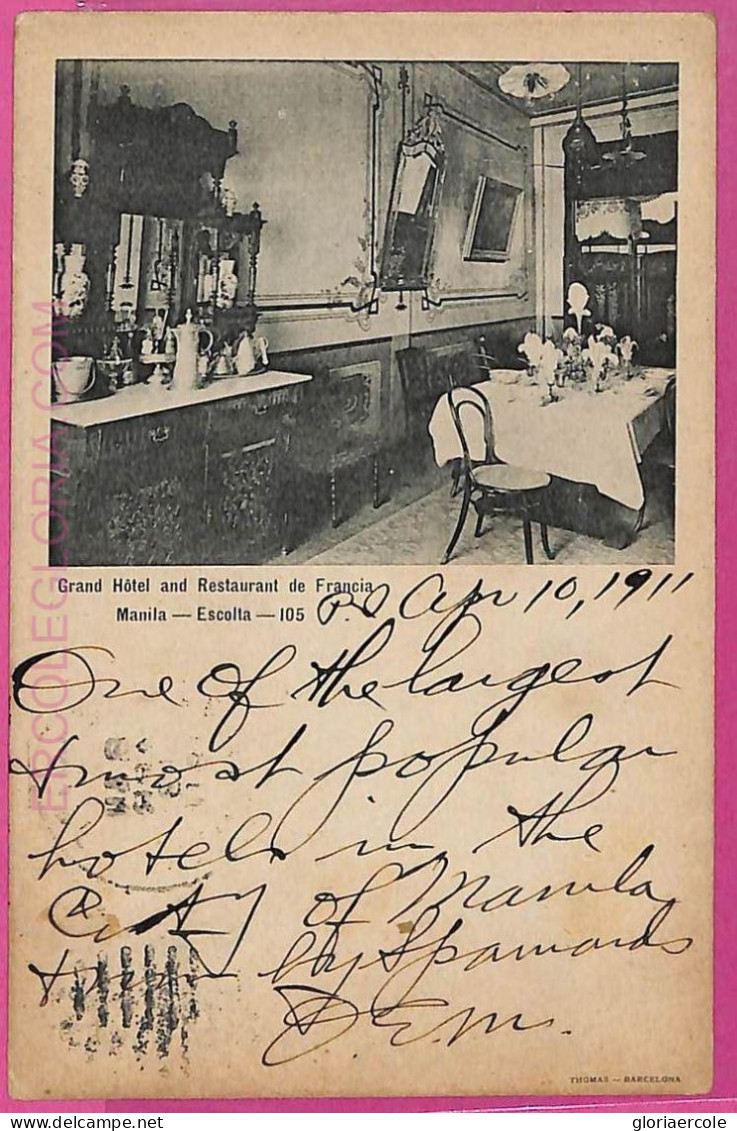 Grand Hôtel and Restaurant de Francia
Manila — Escolta — 105
P.I. Apr 10, 1911
One of the largest
& most popular
hotels in the
City of Manila
by Spaniards
D.E.M.
THOMAS — BARCELONA
ERCOLEGLORIA.COM
gloriaercole